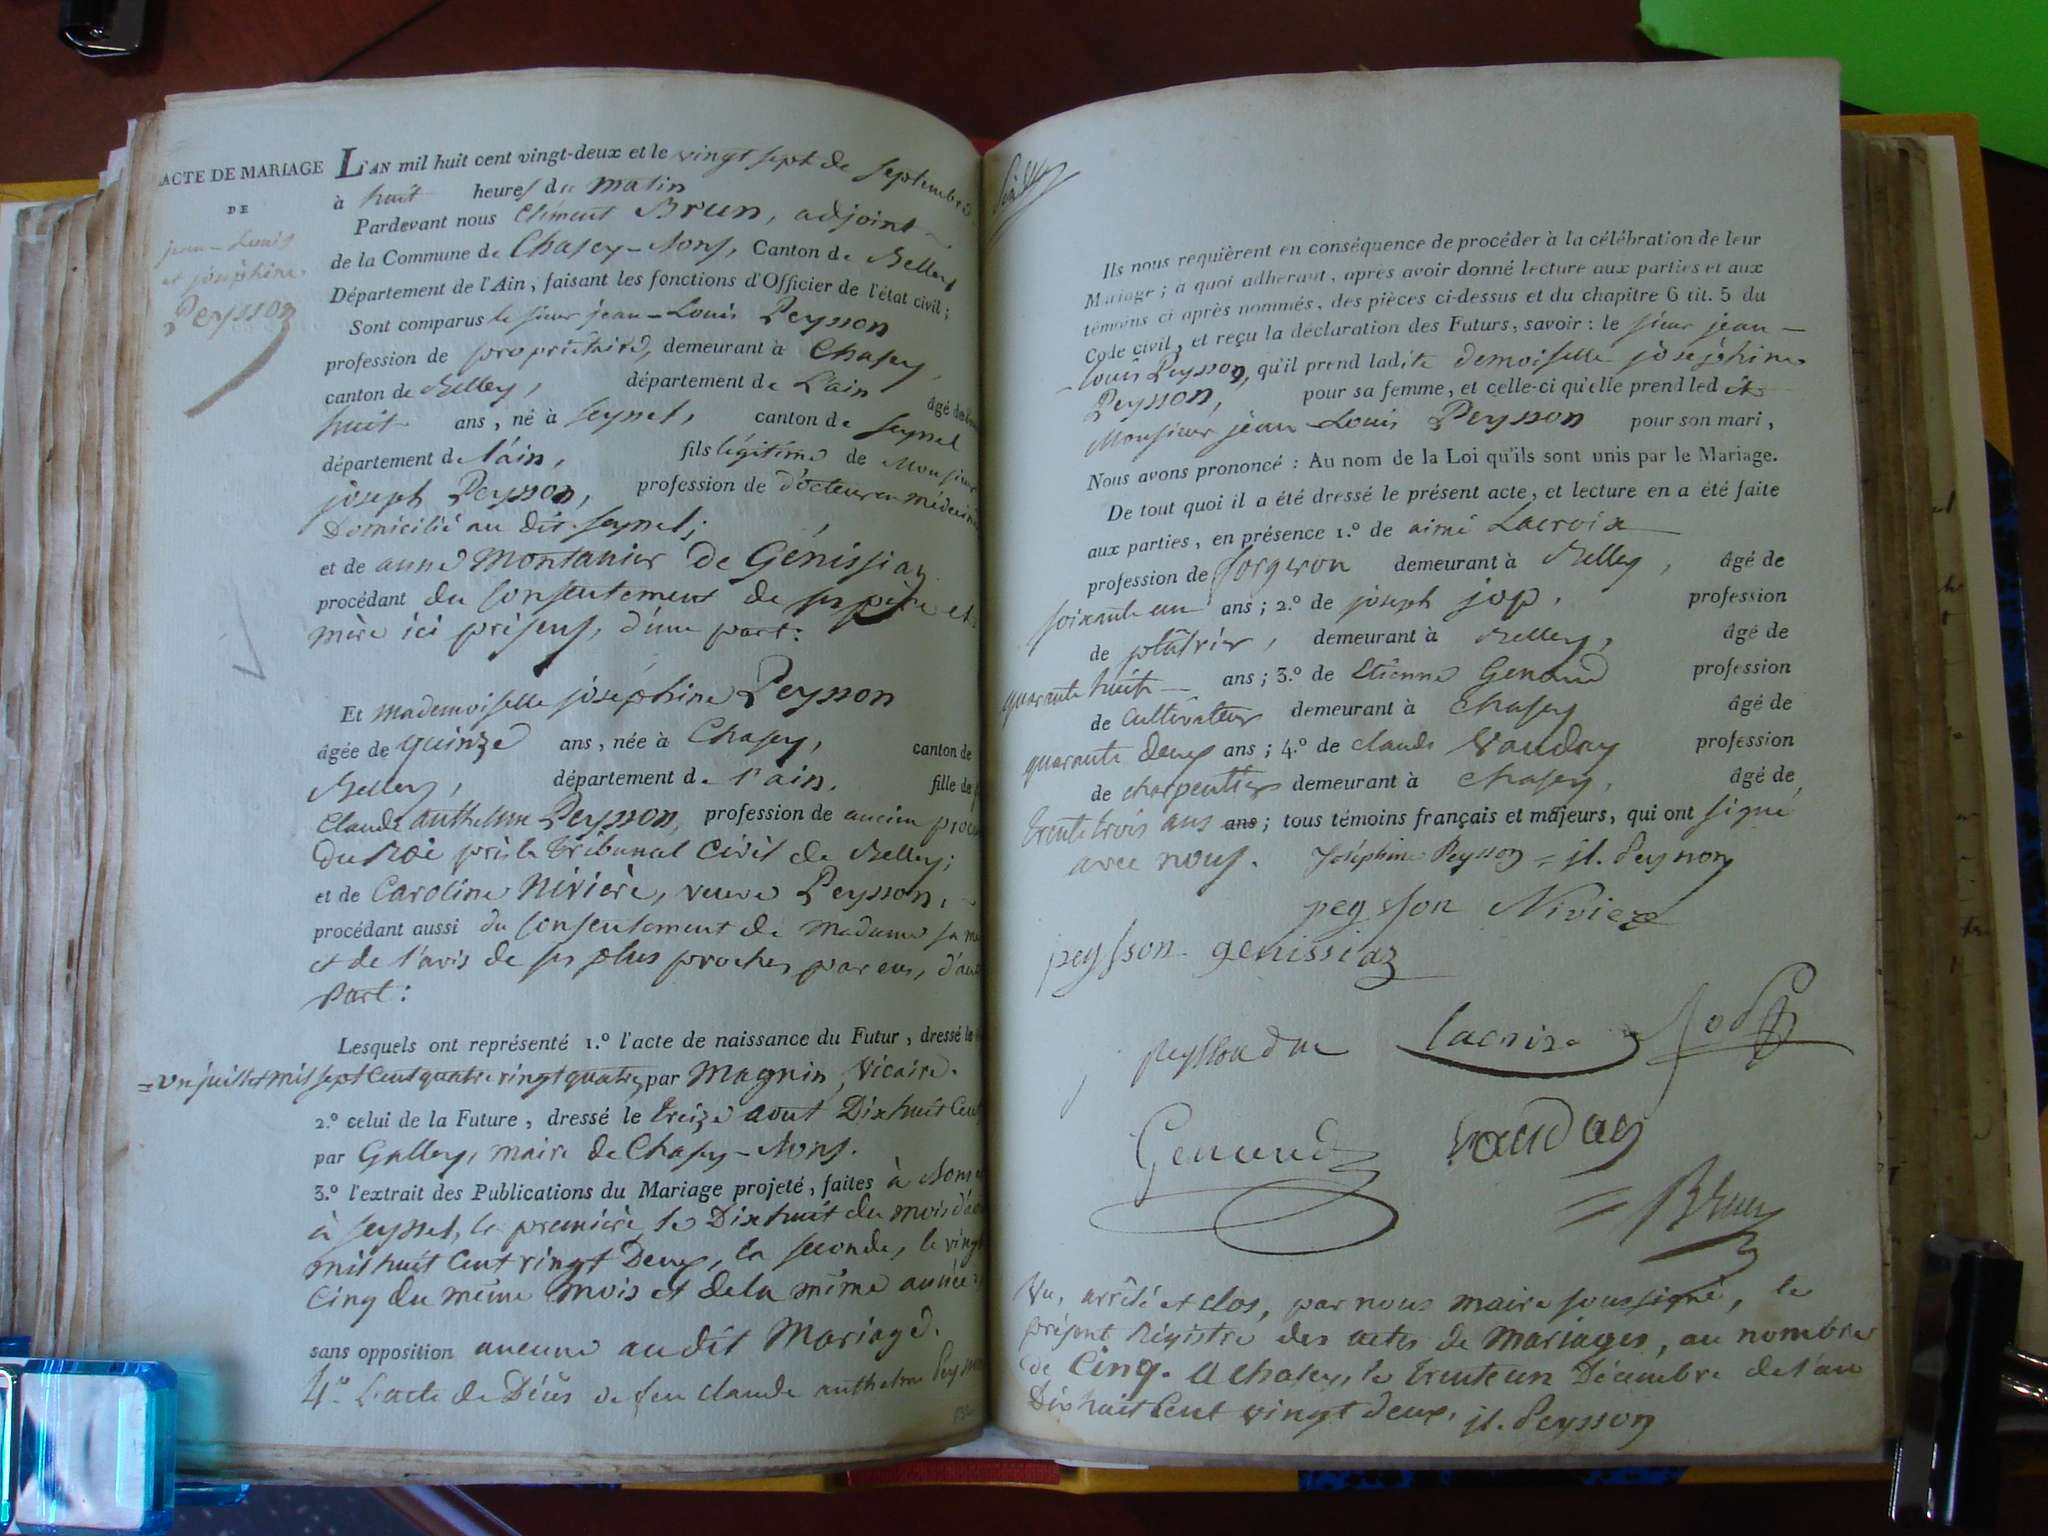 ACTE DE MARIAGE
DE
jean-Louis
et joséphine
Peysson
L'AN mil huit cent vingt-deux et le vingt sept de septembre
à huit heures du matin
Pardevant nous Clément Brun, adjoint
de la Commune de Chasey-Nons, Canton de Belley
Département de l'Ain, faisant les fonctions d'Officier de l'état civil;
Sont comparus le sieur jean-Louis Peysson
profession de propriétaire, demeurant à Chasey,
canton de Belley, département de L'ain âgé de
huit ans, né à Seyssel, canton de Seyssel
département de l'ain, fils légitime de Monsieur
joseph Peysson, profession de docteur en médecine
Domicilié au dit Seyssel;
et de anne Montanier De Génissiaz
procédant du consentement de ses père et
mère ici présens, d'une part:
Et mademoiselle joséphine Peysson
âgée de quinze ans, née à Chasey, canton de
Belley, département de l'ain, fille de
Claude anthelme Peysson, profession de ancien
du Roi près le tribunal Civil de Belley;
et de Caroline Nivière, veuve Peysson,
procédant aussi du consentement de Madame sa
et de l'avis de ses plus proches parens,
Part:
Lesquels ont représenté 1.º l'acte de naissance du Futur, dressé le
un juillet mil sept cent quatre vingt quatre, par Magnin, Vicaire.
2.º celui de la Future, dressé le treize aout Dix huit Cent
par Gallery, maire de Chasey-Nons.
3.º l'extrait des Publications du Mariage projeté, faites à Nons
à Seyssel, la première le Dix huit du mois
mil huit Cent vingt Deux, la seconde, le vingt
Cinq du même mois et de la même année
sans opposition aucune au dit Mariage.
4.º L'acte de Décès de feu claude anthelme Peysson
Ils nous requièrent en conséquence de procéder à la célébration de leur
Mariage; à quoi adhérant, après avoir donné lecture aux parties et aux
témoins ci après nommés, des pièces ci-dessus et du chapitre 6 tit. 5 du
Code civil, et reçu la déclaration des Futurs, savoir: le sieur jean-
-Louis Peysson, qu'il prend ladite demoiselle joséphine
Peysson, pour sa femme, et celle-ci qu'elle prend ledit
Monsieur jean-Louis Peysson pour son mari,
Nous avons prononcé: Au nom de la Loi qu'ils sont unis par le Mariage.
De tout quoi il a été dressé le présent acte, et lecture en a été faite
aux parties, en présence 1.º de aimé Lacroix
profession de forgeron demeurant à Belley, âgé de
soixante un ans; 2.º de joseph jop, profession
de plâtrier, demeurant à Belley, âgé de
quarante huit ans; 3.º de Etienne Genoud profession
de Cultivateur demeurant à Chasey âgé de
quarante deux ans; 4.º de claude Vaudrey profession
de charpentier demeurant à Chasey, âgé de
trente trois ans ans; tous témoins français et majeurs, qui ont signé
avec nous. Joséphine Peysson = jl. Peysson
peysson Nivière
peysson genissiaz
lacroix
Genoud
= Brun
Vu, arrêté et clos, par nous maire soussigné, le
présent Régistre des actes de Mariages, au nombre
de Cinq. A Chasey, le trente un Décembre de l'an
Dix huit Cent vingt deux. jl. Peysson